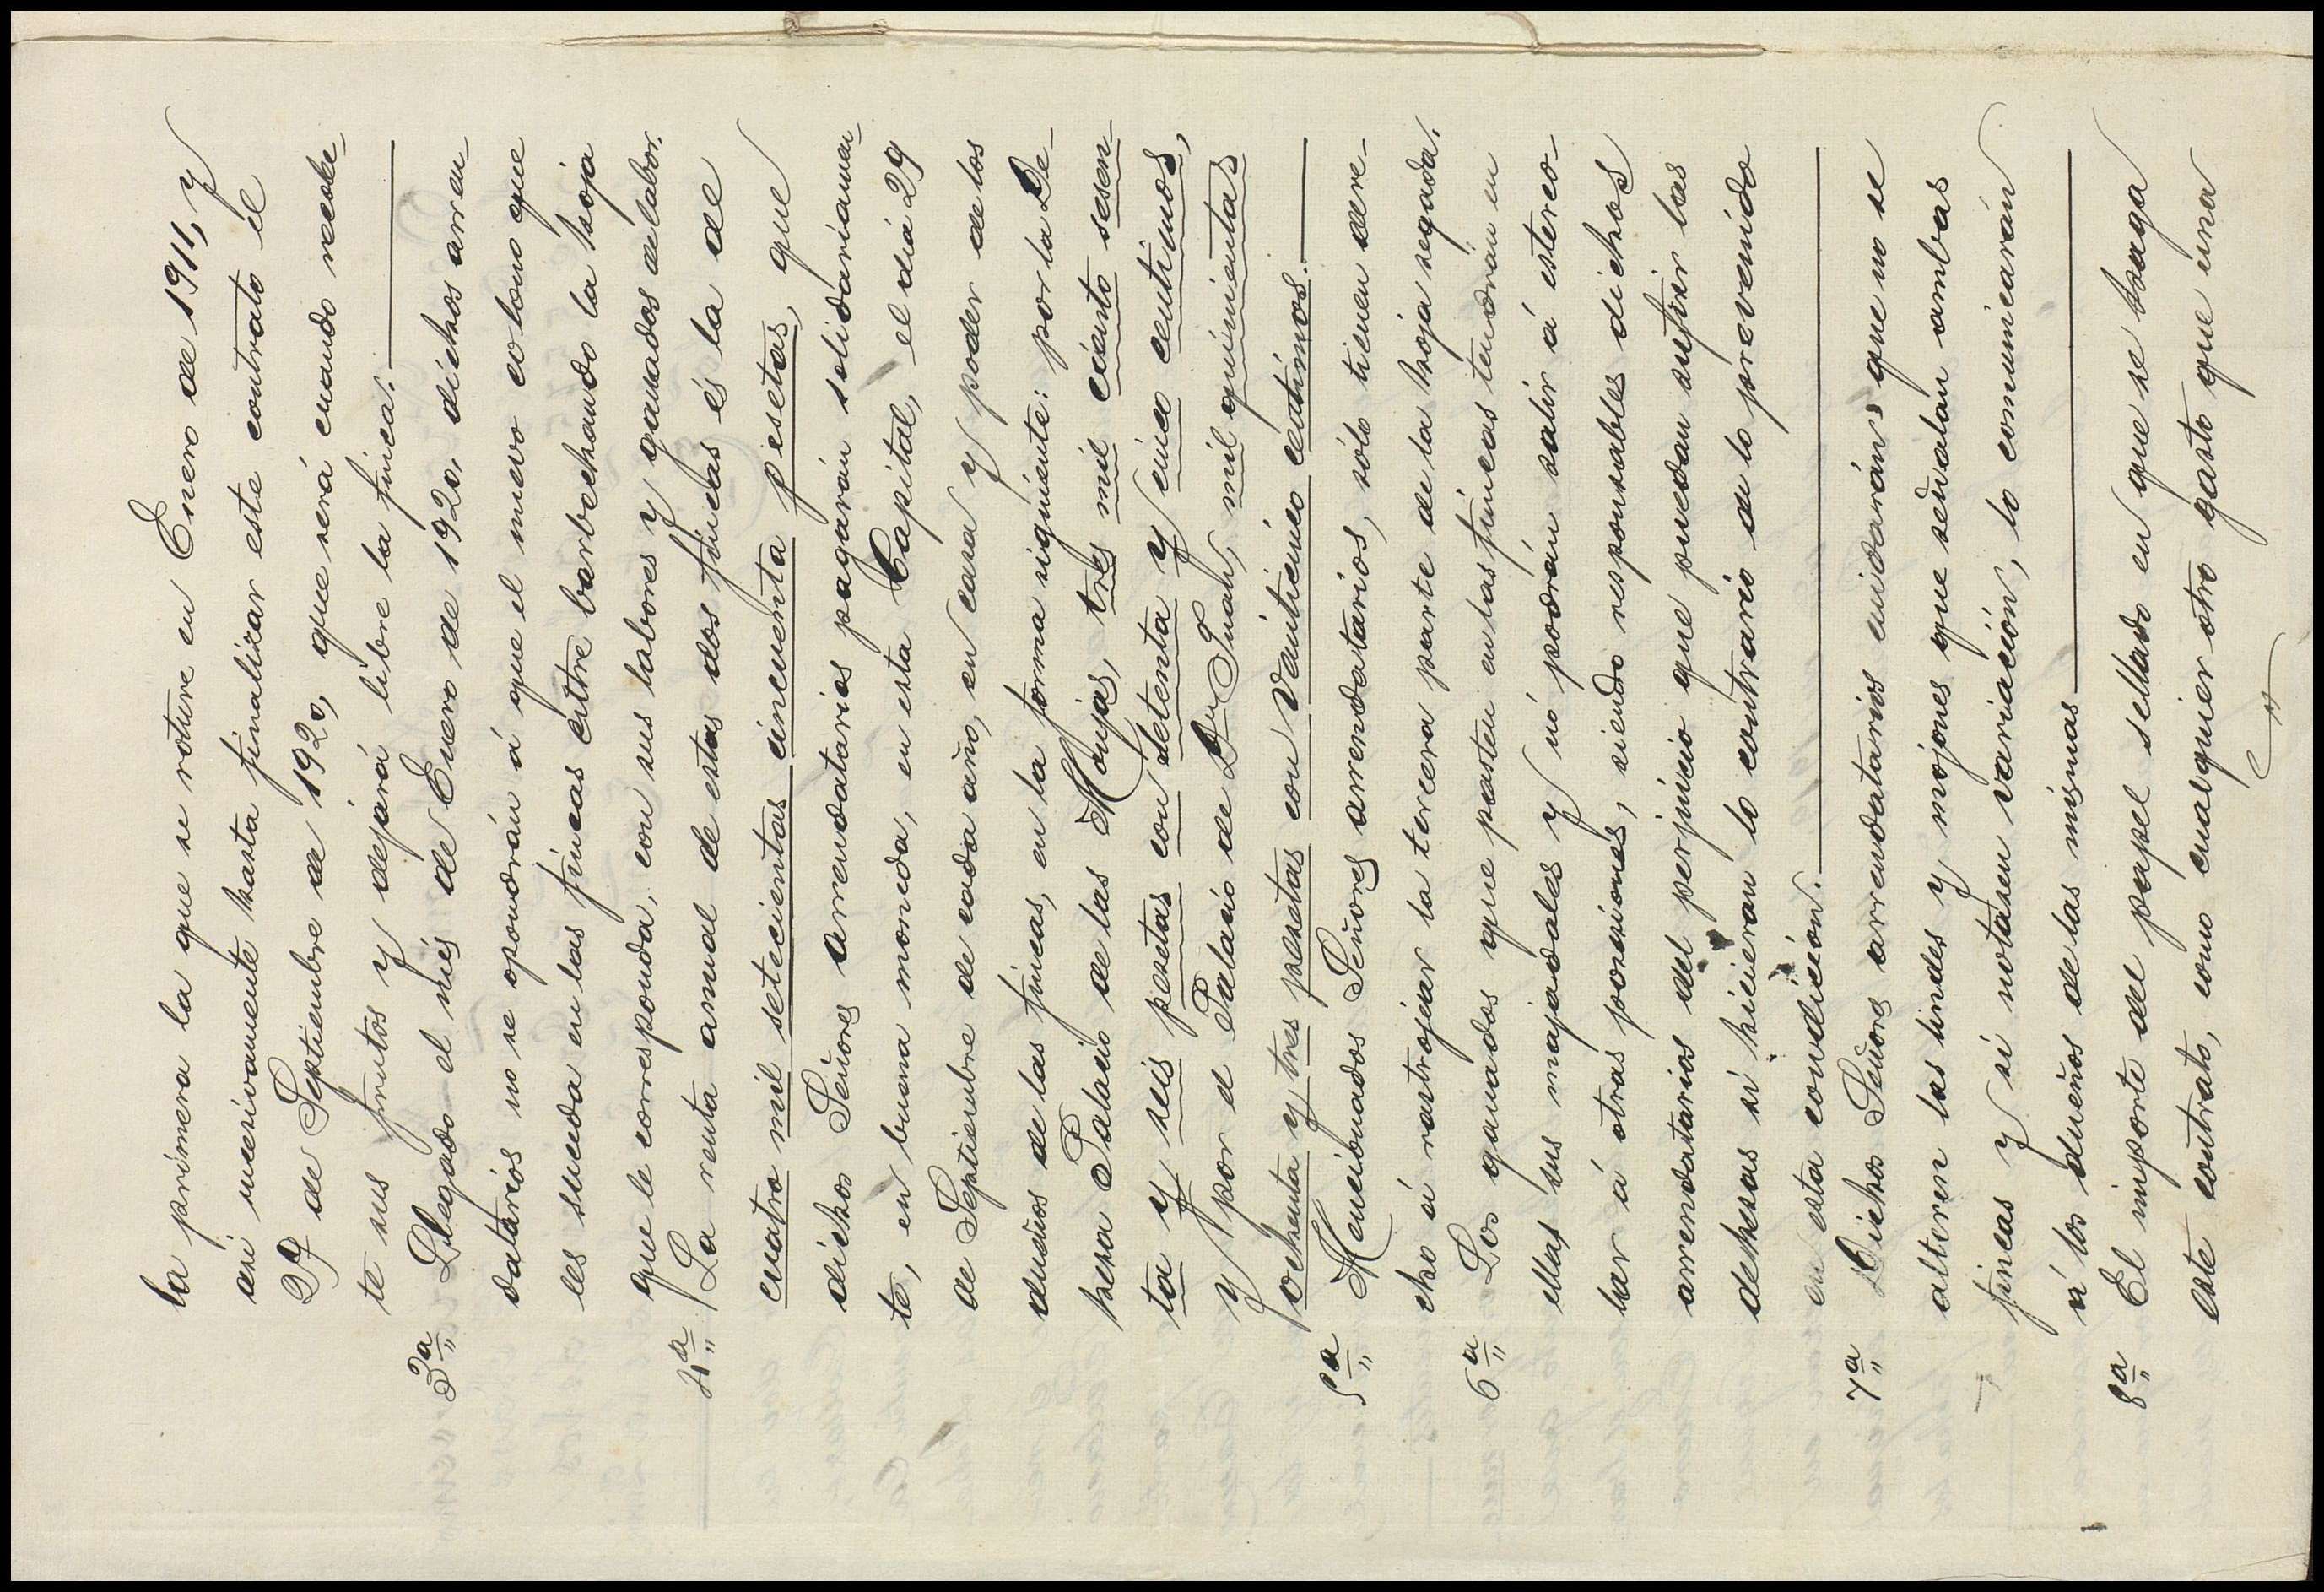 la primera la que se roture en Enero de 1911, y
asi sucesivamente hasta finalizar este contrato el
29 de Septiembre de 1920, que será cuando recolec-
te sus frutos y dejará libre la finca.
3ª Llegado el més de Enero de 1920, dichos arren-
datarios no se opondrán á que el nuevo colono que
les suceda en las fincas entre barbechando la hoja
que le corresponda, con sus labores y ganados de labor.
4ª La renta annual de estas dos fincas és la de
cuatro mil setecientas cincuenta pesetas, que
dichos Señores arrendatarios pagarán solidariamen-
te, en buena moneda, en esta Capital, el dia 29
de Septiembre de cada año, en casa y poder de los
dueños de las fincas, en la forma siguiente: por la De-
hesa Palacio de las Monjas, tres mil ciento sesen-
ta y seis pesetas con setenta y cinco centimos,
y por el Palacio de Dn Juan, mil quinientas
ochenta y tres pesetas con veinticinco centimos.
5ª Mencionados Señores arrendatarios, sólo tienen dere-
cho á rastrojear la tercera parte de la hoja segada.
6ª Los ganados que pasten en las fincas tendrán en
ellas sus majadales y nó podrán salir á esterco-
lar á otras posesiones, siendo responsables dichos
arrendatarios del perjuicio que puedan sufrir las
dehesas si hicieran lo contrario de lo prevenido
en esta condición.
7ª Dichos Señores arrendatarios cuidarán que no se
alteren las lindes y mojones que señalan ambas
fincas y si notasen variación, lo comunicarán
á los dueños de las mismas
8ª El importe del papel sellado en que se haga
este contrato, como cualquier otro gasto que una